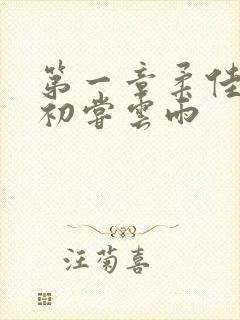 第一章柔佳
初尝雲雨
汪菊喜